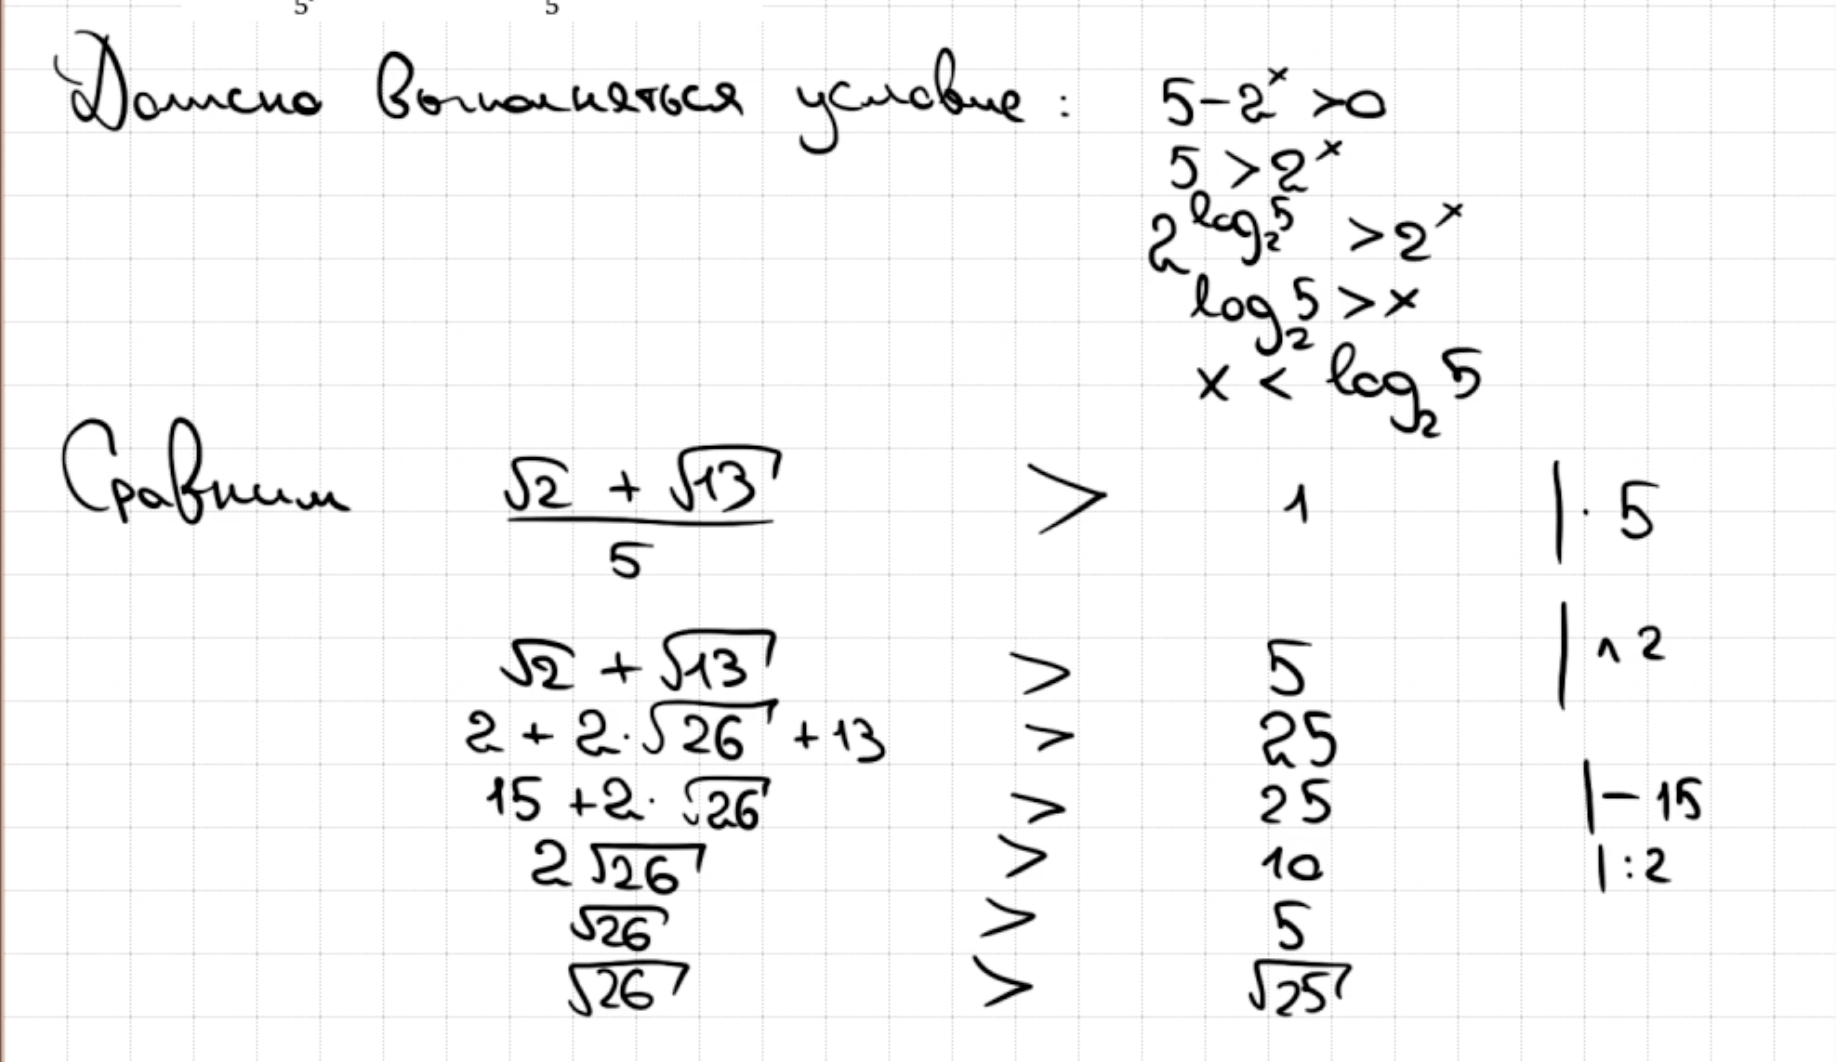 5 5
Должно выполняться условие: 5-2^x>0
5>2^x
2^{log_2 5} >2^x
log_2 5 > x
x < log_2 5
Сравним (√2 + √13)/5 > 1 |·5
√2 + √13 > 5 |^2
2 + 2·√26 + 13 > 25
15 + 2·√26 > 25 |-15
2√26 > 10 |:2
√26 > 5
√26 > √25